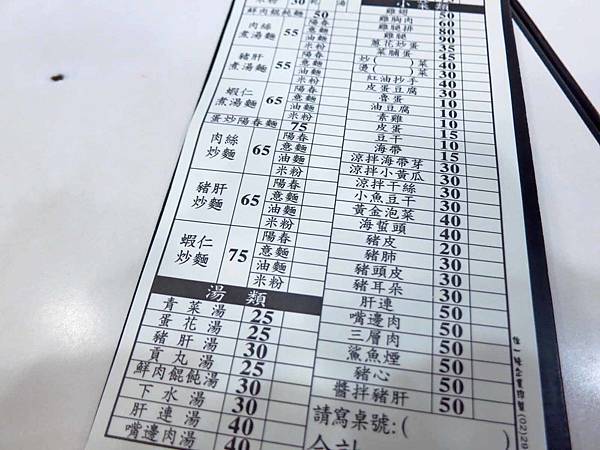 米粉 30
鮮肉餛飩麵 50
肉絲煮湯麵 55 陽春 意麵 油麵 米粉
豬肝煮湯麵 55 陽春 意麵 油麵 米粉
蝦仁煮湯麵 65 陽春 意麵 油麵 米粉
蛋炒陽春麵 75
肉絲炒麵 65 陽春 意麵 油麵 米粉
豬肝炒麵 65 陽春 意麵 油麵 米粉
蝦仁炒麵 75 陽春 意麵 油麵 米粉
湯類
青菜湯 25
蛋花湯 25
豬肝湯 30
貢丸湯 25
鮮肉餛飩湯 30
下水湯 30
肝連湯 40
嘴邊肉湯 40
小菜類
雞翅 50
雞胸肉 60
雞腿排 80
雞腿 90
蔥花炒蛋 35
菜脯蛋 45
炒( )菜 40
燙( )菜 30
紅油抄手 40
皮蛋豆腐 30
魯蛋 10
油豆腐 10
素雞 10
皮蛋 15
豆干 10
海帶 15
涼拌海帶芽 30
涼拌小黃瓜 30
涼拌干絲 30
小魚豆干 30
黃金泡菜 40
海蜇頭 40
豬皮 20
豬肺 30
豬頭皮 30
豬耳朵 30
肝連 50
嘴邊肉 50
三層肉 50
鯊魚煙 50
豬心 50
醬拌豬肝 50
請寫桌號:( )
合計